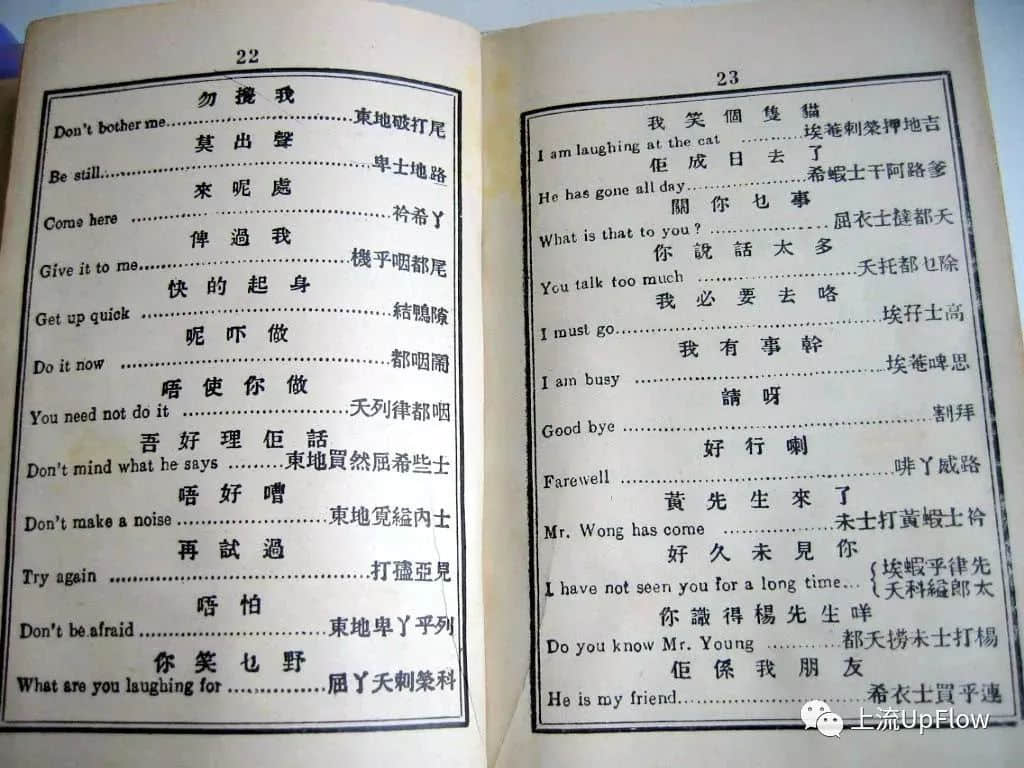 22
勿攪我
Don't bother me..................東地破打尾
莫出聲
Be still..................卑士地路
來呢處
Come here ..................衿希丫
俾過我
Give it to me..................機乎咽都尾
快的起身
Get up quick ..................結鴨隙
呢吓做
Do it now ..................都咽鬧
唔使你做
You need not do it ..................天列律都咽
吾好理佢話
Don't mind what he says ..................東地買然屈希些士
唔好嘈
Don't make a noise ..................東地覓縊內士
再試過
Try again ..................打孻亞見
唔怕
Don't be afraid ..................東地卑丫乎列
你笑乜野
What are you laughing for ..................屈丫天剌榮科
23
我笑個隻貓
I am laughing at the cat ..................埃菴剌榮押地吉
佢成日去了
He has gone all day..................希蝦士干阿路爹
關你乜事
What is that to you ? ..................屈衣士撻都天
你說話太多
You talk too much ..................天托都乜除
我必要去咯
I must go..................埃孖士高
我有事幹
I am busy ..................埃菴啤思
請呀
Good bye ..................割拜
好行喇
Farewell ..................啡丫威路
黃先生來了
Mr. Wong has come ..................未士打黃蝦士衿
好久未見你
I have not seen you for a long time... {埃蝦乎律先
{天科縊郎太
你識得楊先生咩
Do you know Mr. Young ..................都天撈未士打楊
佢係我朋友
He is my friend..................希衣士買乎連
上流UpFlow